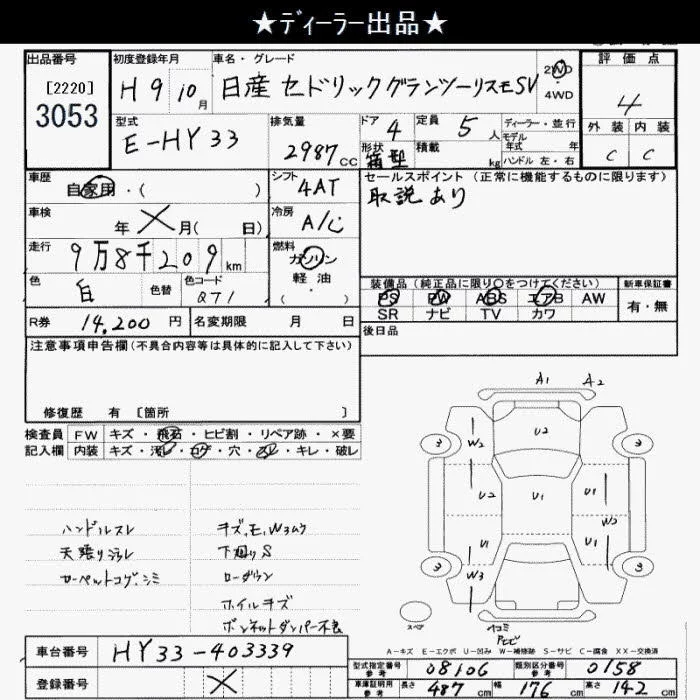 ★ディーラー出品★
出品番号 初度登録年月 車名・グレード 評価点
[2220] H9 10月 日産 セドリックグランツーリスモSV 2WD 4
3053 4WD 外装 内装
型式 排気量 ドア 4 定員 5人 ディーラー・並行 C C
E-HY33 2987cc 形状 箱型 積載 kg モデル年式 年
ハンドル 左・右
車歴 シフト セールスポイント(正常に機能するものに限ります)
自家用・( ) 4AT 取説あり
車検 年 月( 日) 冷房 A/C
走行 9万8千209km 燃料
ガソリン
色 白 色替 色コード QT1 軽油
( ・ )
装備品(純正品に限り○をつけてください) 新車保証書
PS PW ABS エアB AW 有・無
SR ナビ TV カワ
R券 14,200円 名変期限 月 日 後日品
注意事項申告欄(不具合内容等は具体的に記入して下さい)
修復歴 有 [箇所 ]
検査員 FW キズ・飛石・ヒビ割・リペア跡・×要
記入欄 内装 キズ・汚レ・コゲ・穴・スレ・キレ・破レ
A1 A2
U2
3 W2 3
U2 U1 U1
W2
U1 U1
3 W3 3
スペア
ハンドルスレ キズ,モ,Wムラ
天張りジワレ 下廻りS
カーペットコゲ,シミ ローダウン
ホイルキズ
ボンネットダンパー不良
A-キズ E-エクボ U-凹み W-補修跡 S-サビ C-腐食 XX-交換済
車台番号 HY33-403339 型式指定番号 参考 08106 類別区分番号 参考 0158
登録番号 車庫証明用 参考 長さ 487cm 幅 176cm 高さ 142cm